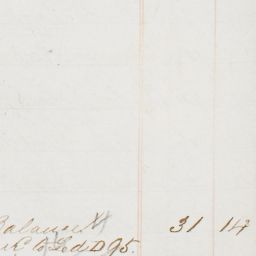 Balance 31 14
to Led D 95.